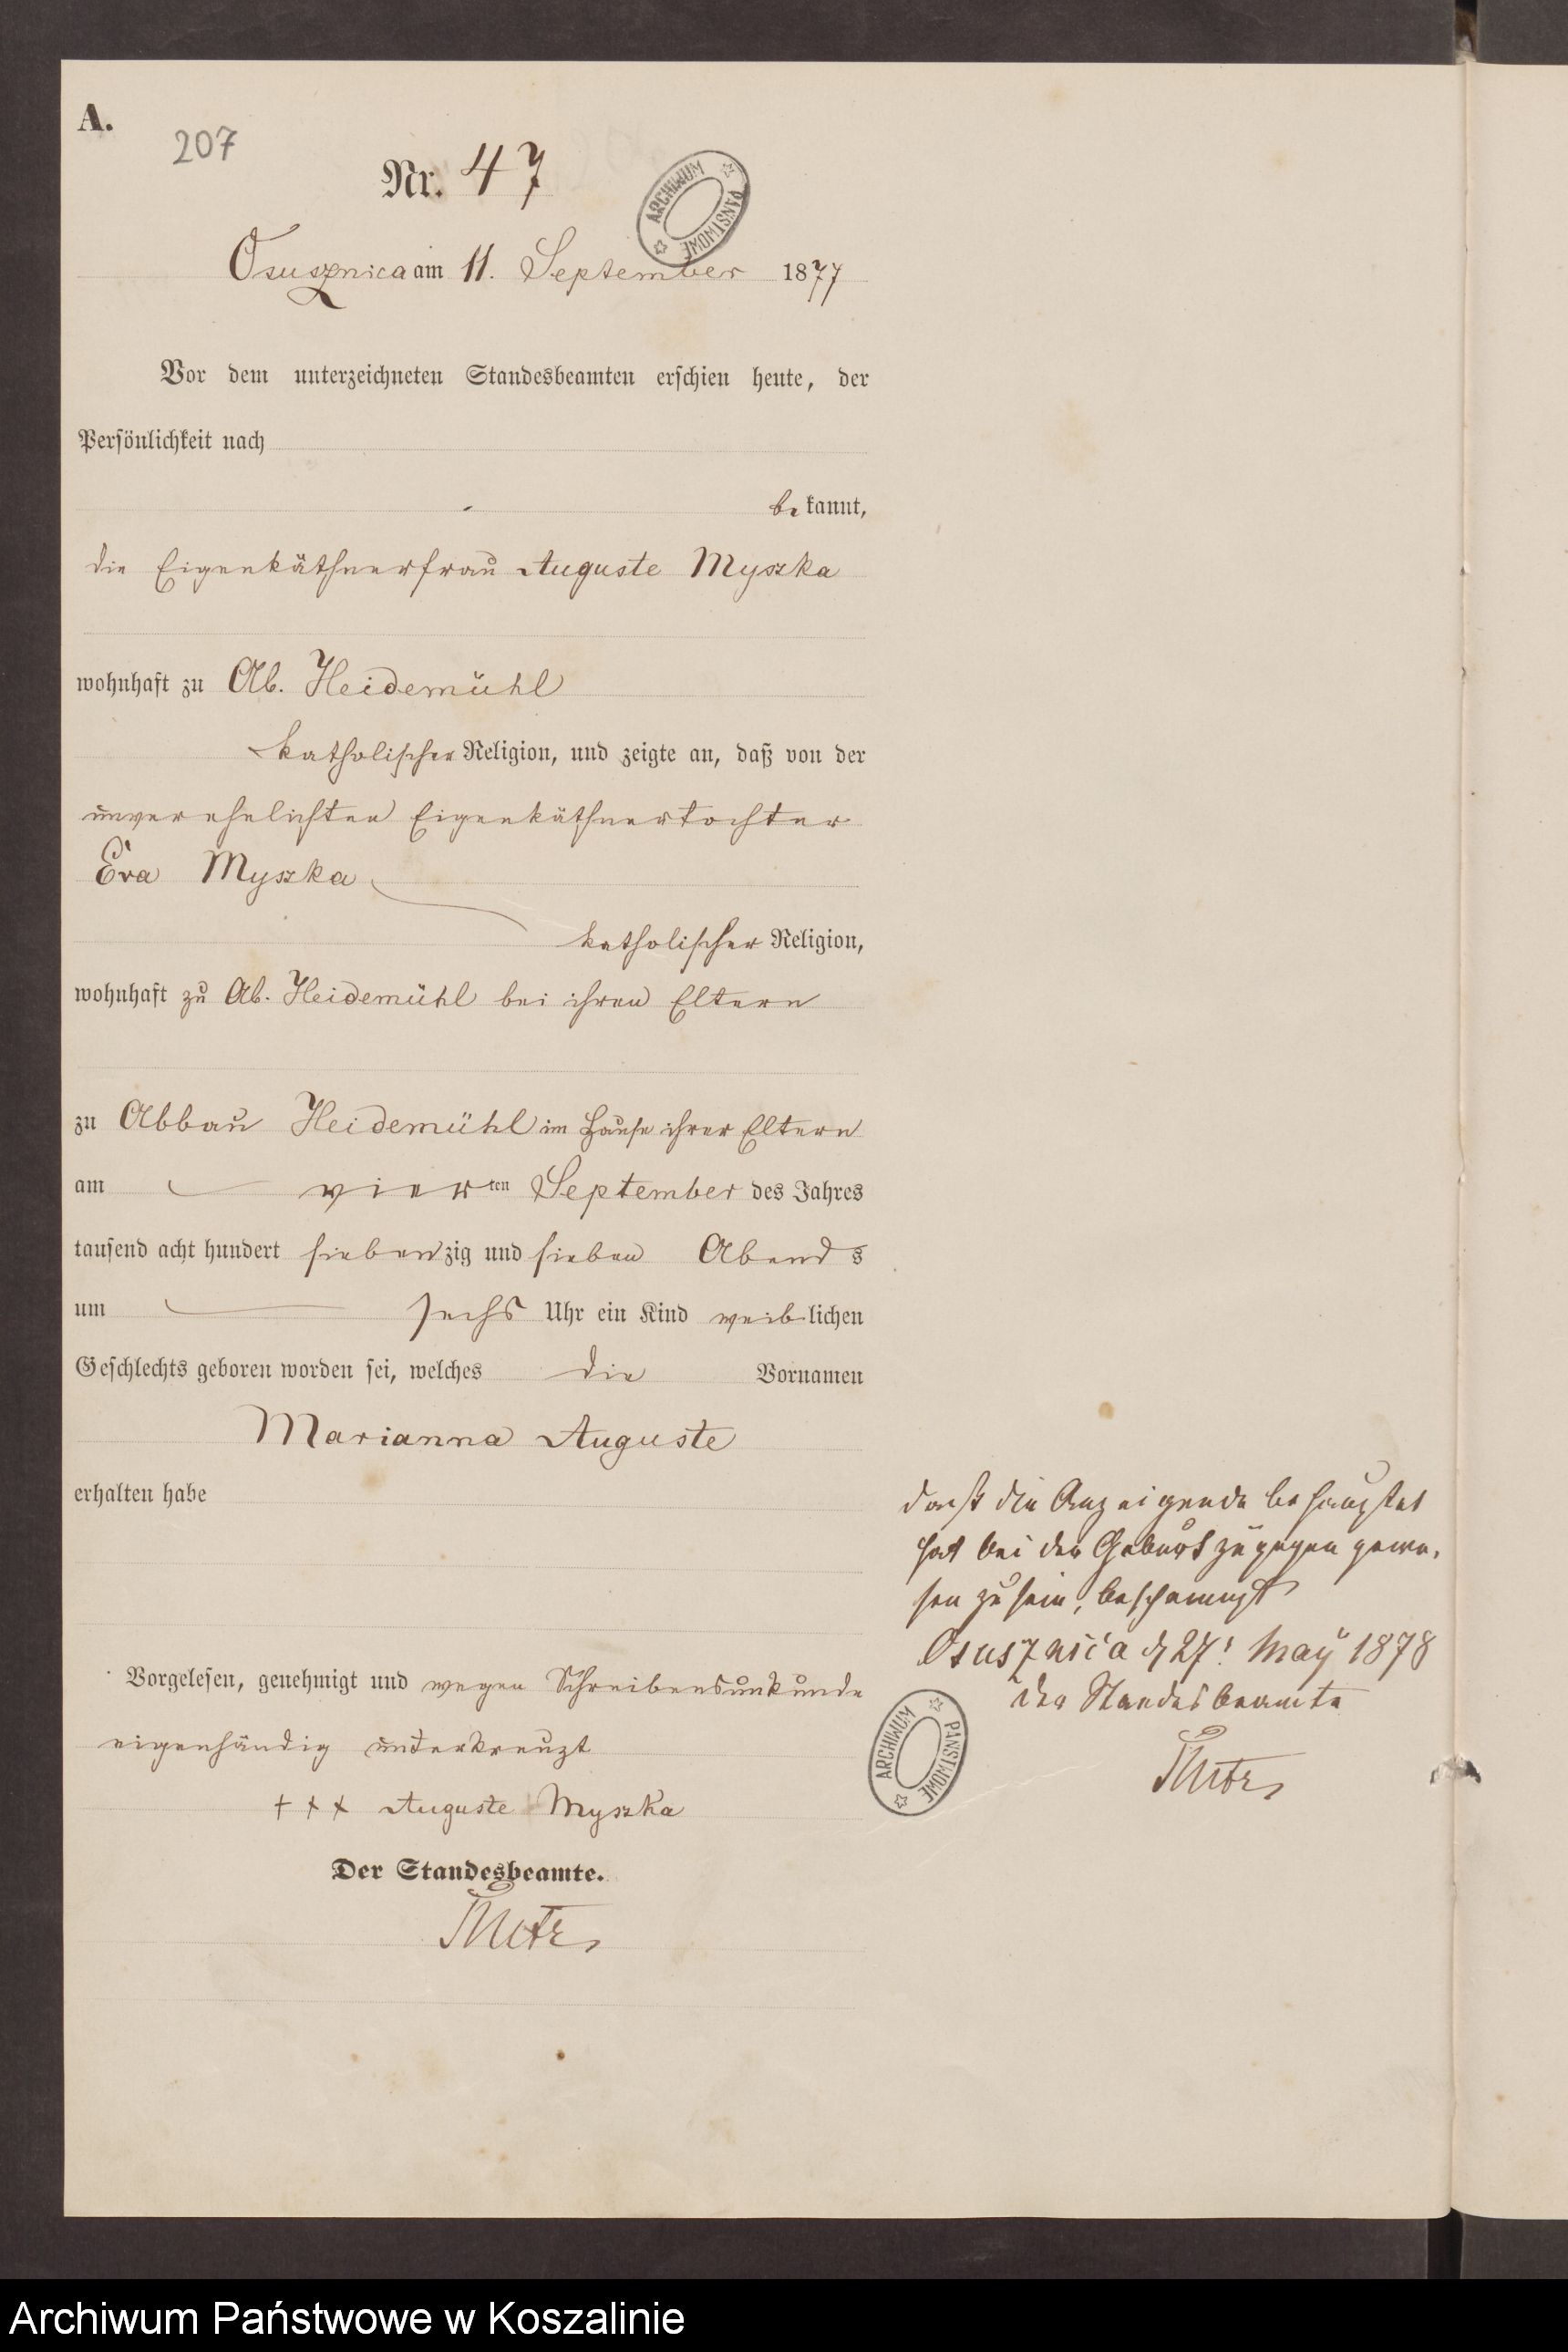 A.
207
Nr. 47
ARCHIWUM PAŃSTWOWE
Osusznica am 11. September 1877
Vor dem unterzeichneten Standesbeamten erschien heute, der
Persönlichkeit nach
bekannt,
die Eigenkäthnerfrau Auguste Myszka
wohnhaft zu Ab. Heidemühl
katholischer Religion, und zeigte an, daß von der
unverehelichten Eigenkäthnertochter
Eva Myszka
katholischer Religion,
wohnhaft zu Ab. Heidemühl bei ihren Eltern
zu Abbau Heidemühl im Hause ihrer Eltern
am vierten September des Jahres
tausend acht hundert siebenzig und sieben Abends
um sechs Uhr ein Kind weiblichen
Geschlechts geboren worden sei, welches die Vornamen
Marianna Auguste
erhalten habe
Vorgelesen, genehmigt und wegen Schreibensunkunde
eigenhändig unterkreuzt
+++ Auguste Myszka
Der Standesbeamte.
daß die Anzeigende behauptet
hat bei der Geburt zugegen gewe-
sen zu sein, bescheinigt
Osusznica d 27! May 1878
Der Standesbeamte
ARCHIWUM PAŃSTWOWE
Archiwum Państwowe w Koszalinie